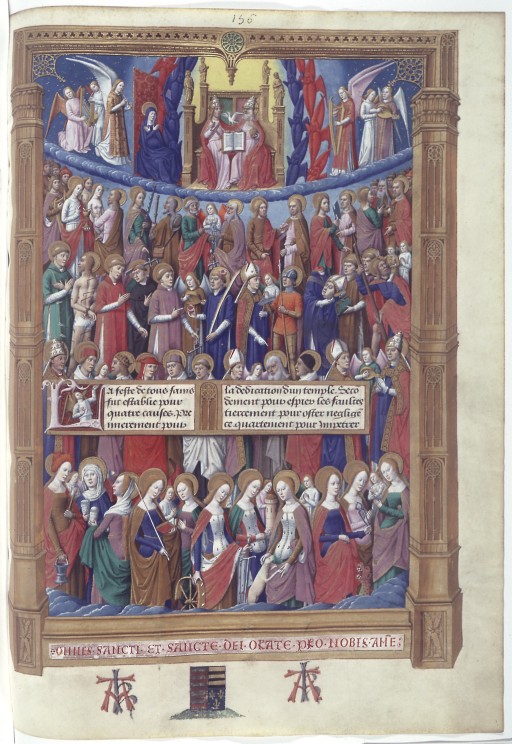 156
La feste de tous sains
fut establie pour
quatre causes. Pre
mierement pour
la dedication dun temple. Seco
dement pour espier les faultes
tiercement pour oster neglige
ce quartement pour impetrer
OMNES·SANCTI·ET·SANCTE·DEI·ORATE·PRO·NOBIS·AME